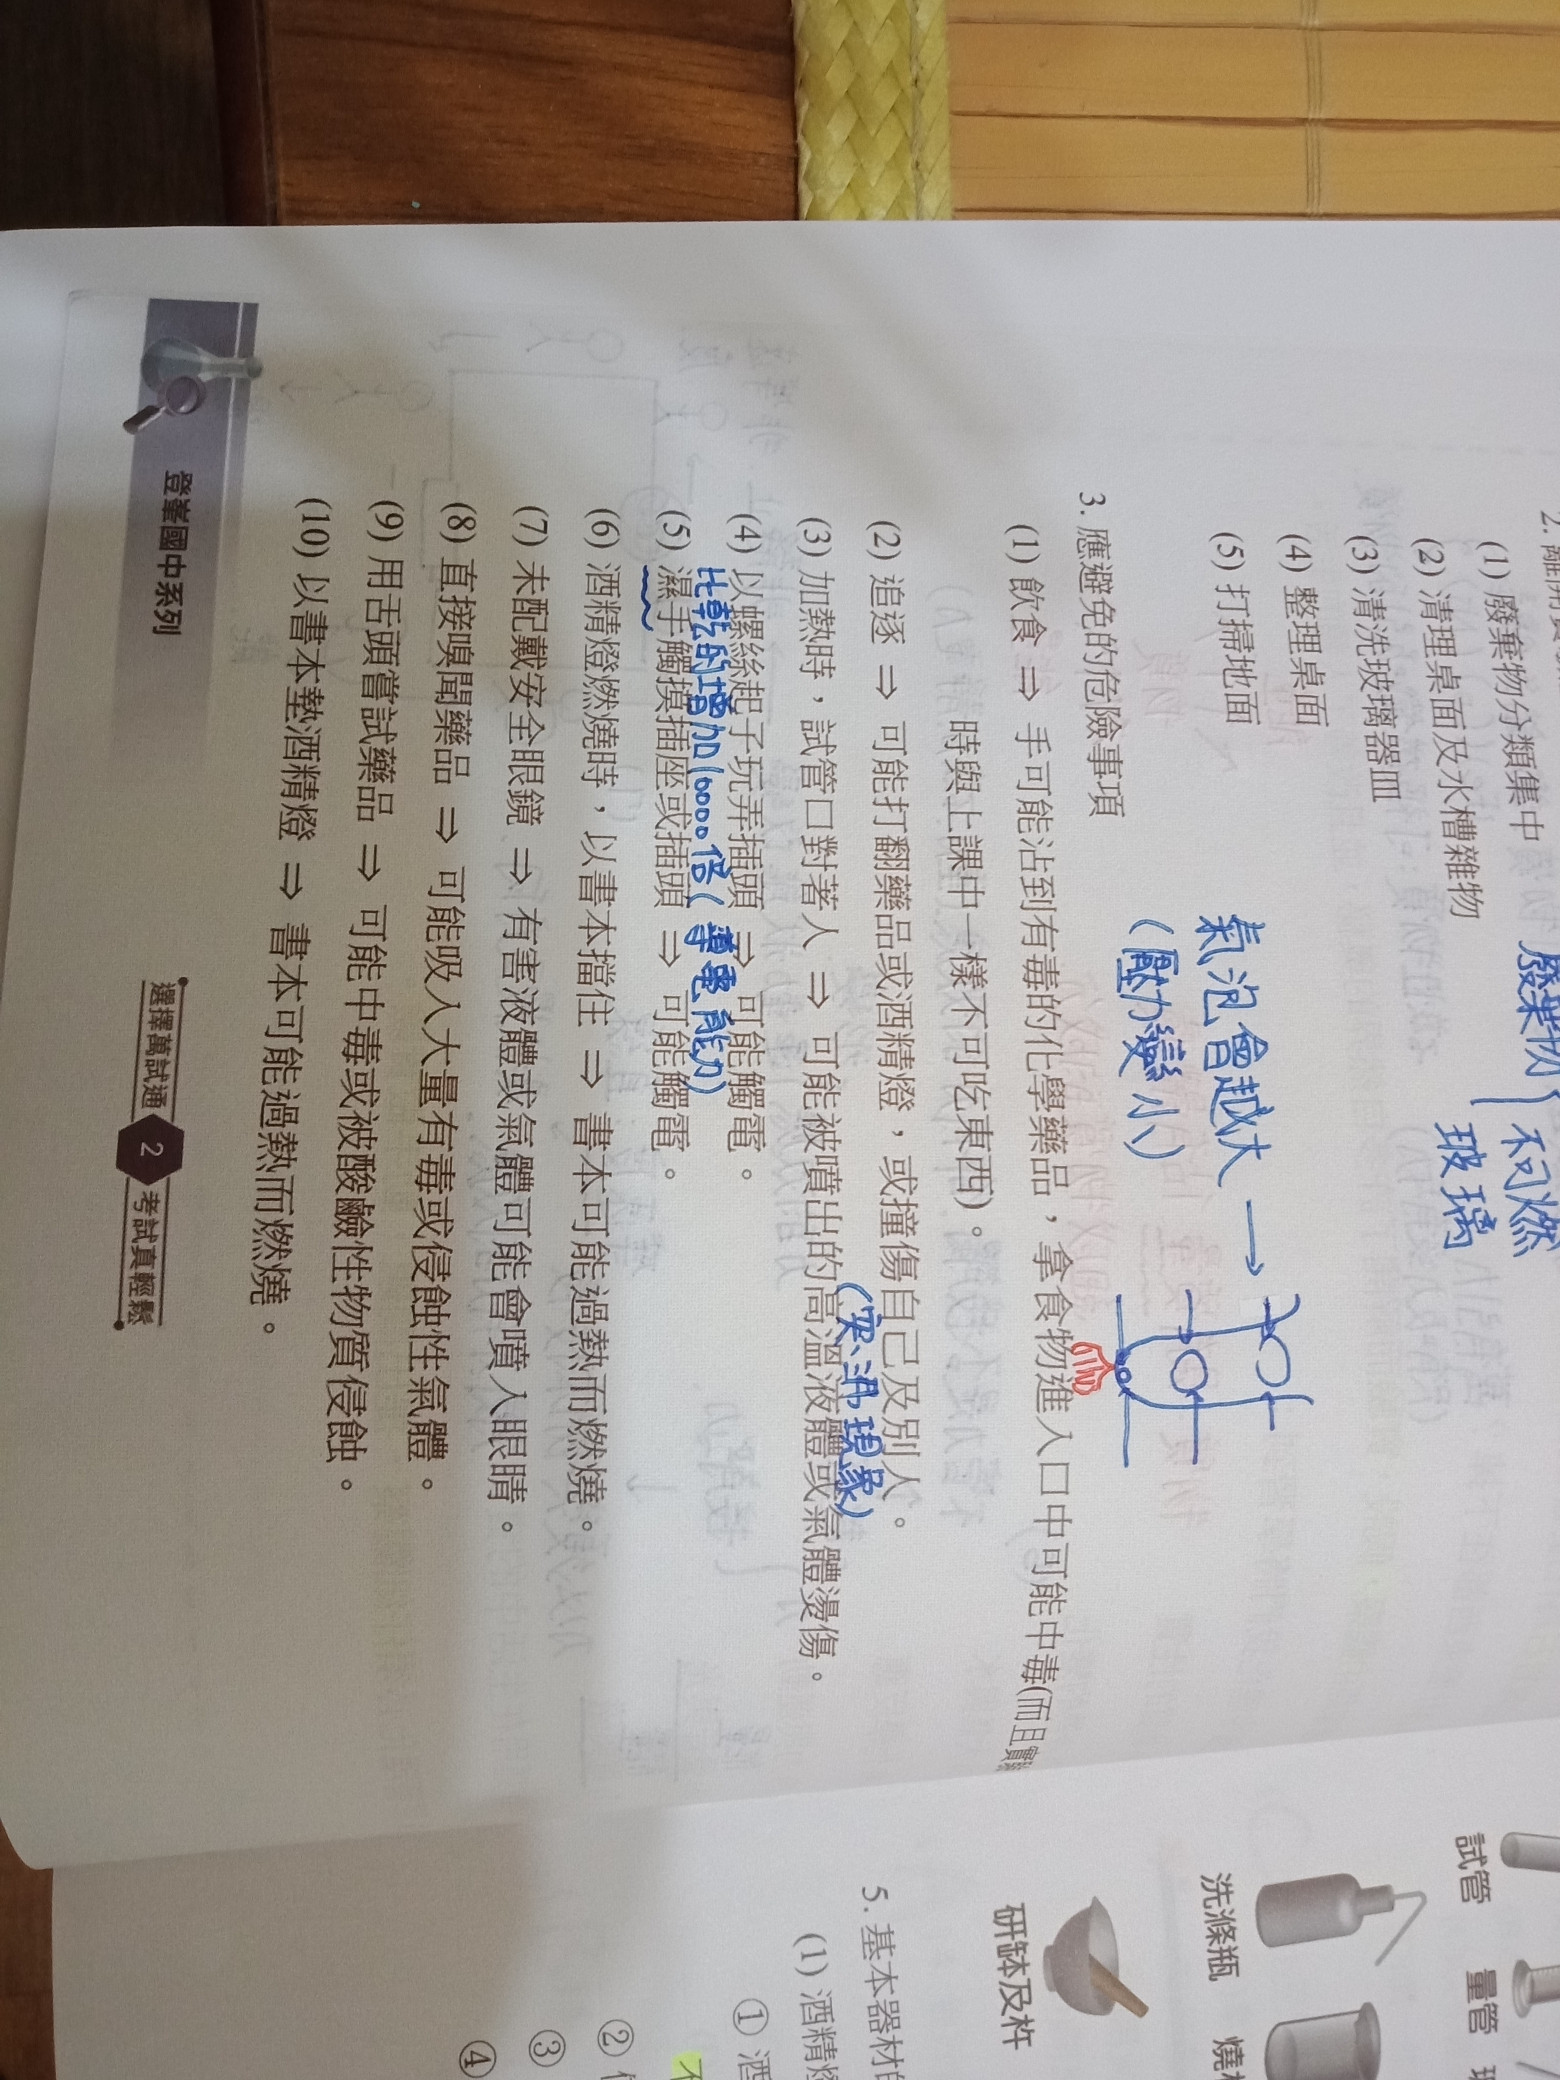 (1) 廢棄物分類集中
(2) 清理桌面及水槽雜物
(3) 清洗玻璃器皿
(4) 整理桌面
(5) 打掃地面
廢棄物
不可燃
玻璃
氣泡會越大 →
(壓力變小)
3. 應避免的危險事項
(1) 飲食 ⇒ 手可能沾到有毒的化學藥品,拿食物進入口中可能中毒(而且實驗
時與上課中一樣不可吃東西)。
(2) 追逐 ⇒ 可能打翻藥品或酒精燈,或撞傷自己及別人。
(突沸現象)
(3) 加熱時,試管口對著人 ⇒ 可能被噴出的高溫液體或氣體燙傷。
(4) 以螺絲起子玩弄插頭 ⇒ 可能觸電。
比乾的增加10000倍(導電能力)
(5) 濕手觸摸插座或插頭 ⇒ 可能觸電。
(6) 酒精燈燃燒時,以書本擋住 ⇒ 書本可能過熱而燃燒。
(7) 未配戴安全眼鏡 ⇒ 有害液體或氣體可能會噴入眼睛。
(8) 直接嗅聞藥品 ⇒ 可能吸入大量有毒或侵蝕性氣體。
(9) 用舌頭嘗試藥品 ⇒ 可能中毒或被酸鹼性物質侵蝕。
(10) 以書本墊酒精燈 ⇒ 書本可能過熱而燃燒。
登峯國中系列
選擇萬試通 2 考試真輕鬆
試管 量管
洗滌瓶
研缽及杵
5. 基本器材
(1) 酒精燈
① 酒
②
③
④